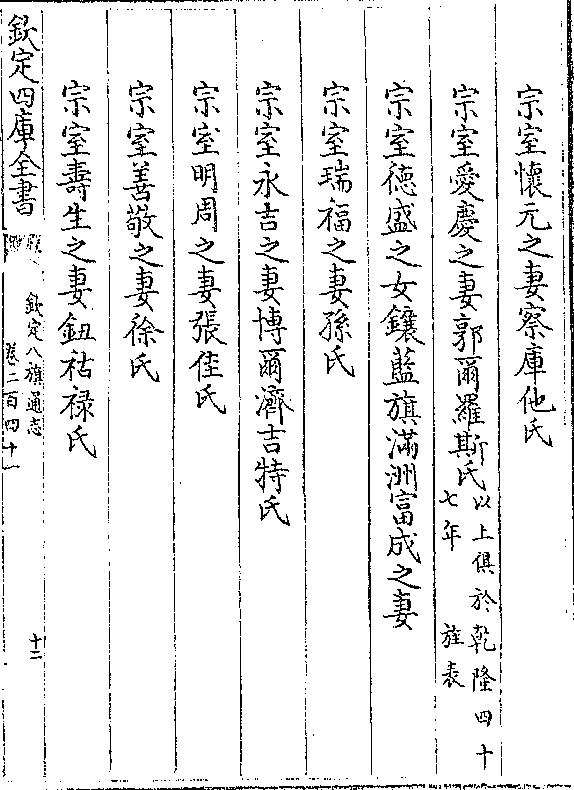 宗室懷元之妻察庫他氏
宗室愛慶之妻郭爾羅斯氏以上俱於乾隆四十
七年　旌表
宗室德盛之女鑲藍旗滿洲富成之妻
宗室瑞福之妻孫氏
宗室永吉之妻博爾濟吉特氏
宗室明周之妻張佳氏
宗室善敬之妻徐氏
宗室壽生之妻鈕祜祿氏
欽定四庫全書
欽定八旗通志
卷二百四十一
十二